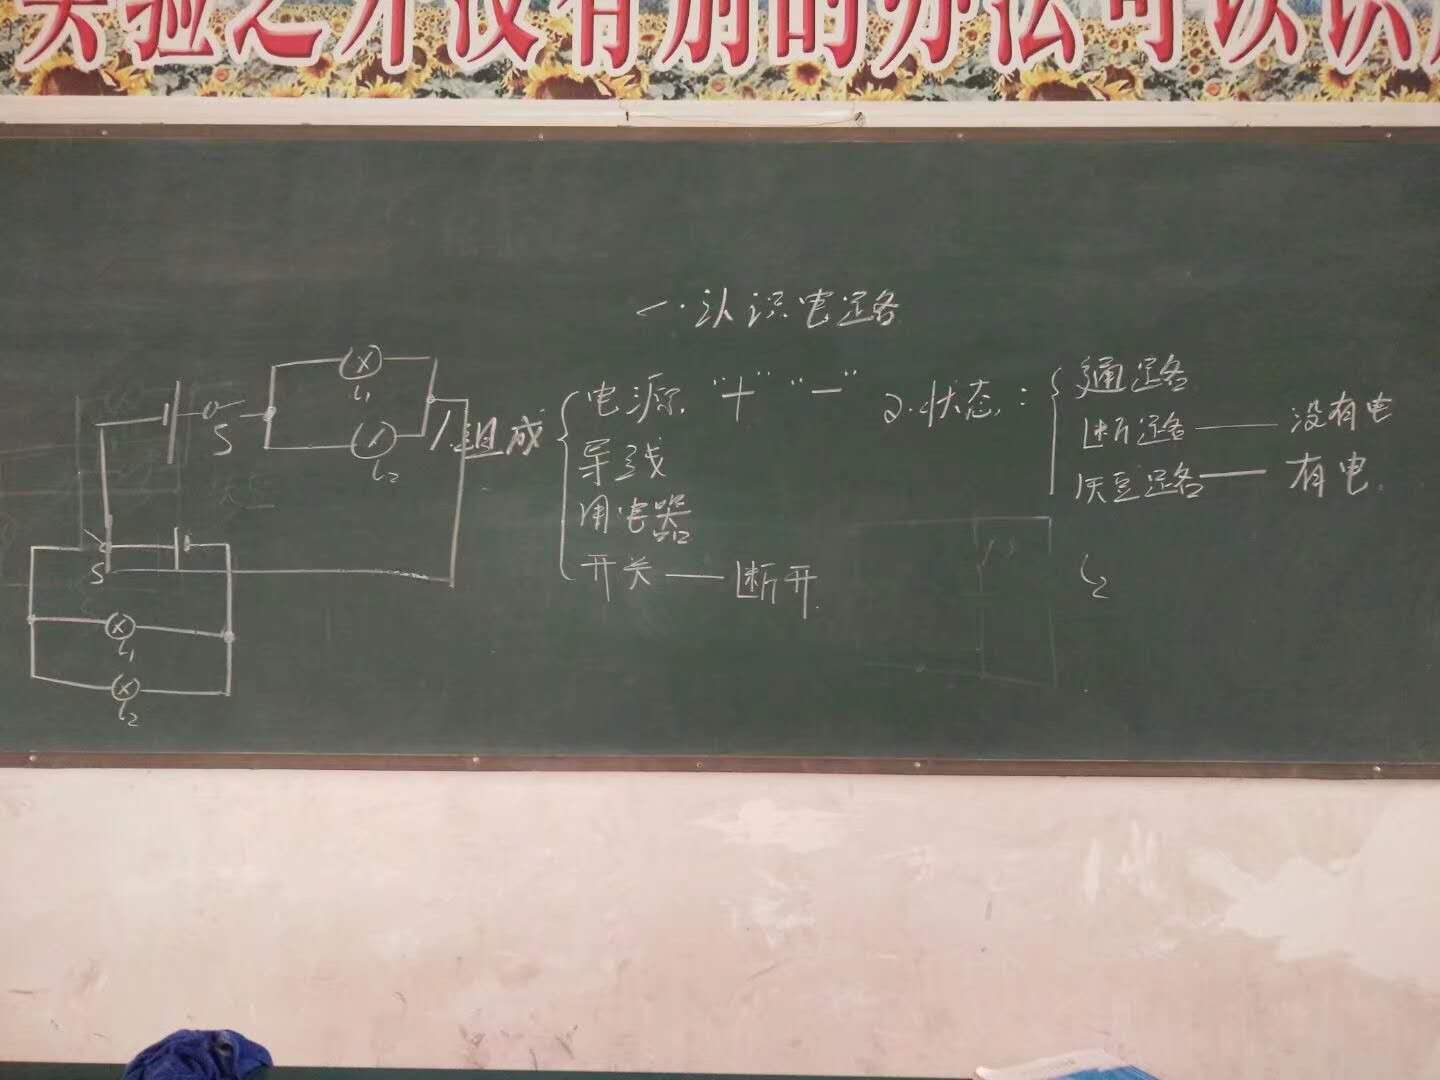 实验之外没有别的办法可以识
一.认识电路
1.组成
电源 "十" "一"
导线
用电器
开关——断开.
2.状态:
通路
断路——没有电
短路——有电.
S
L1
L2
S
L1
L2
L2